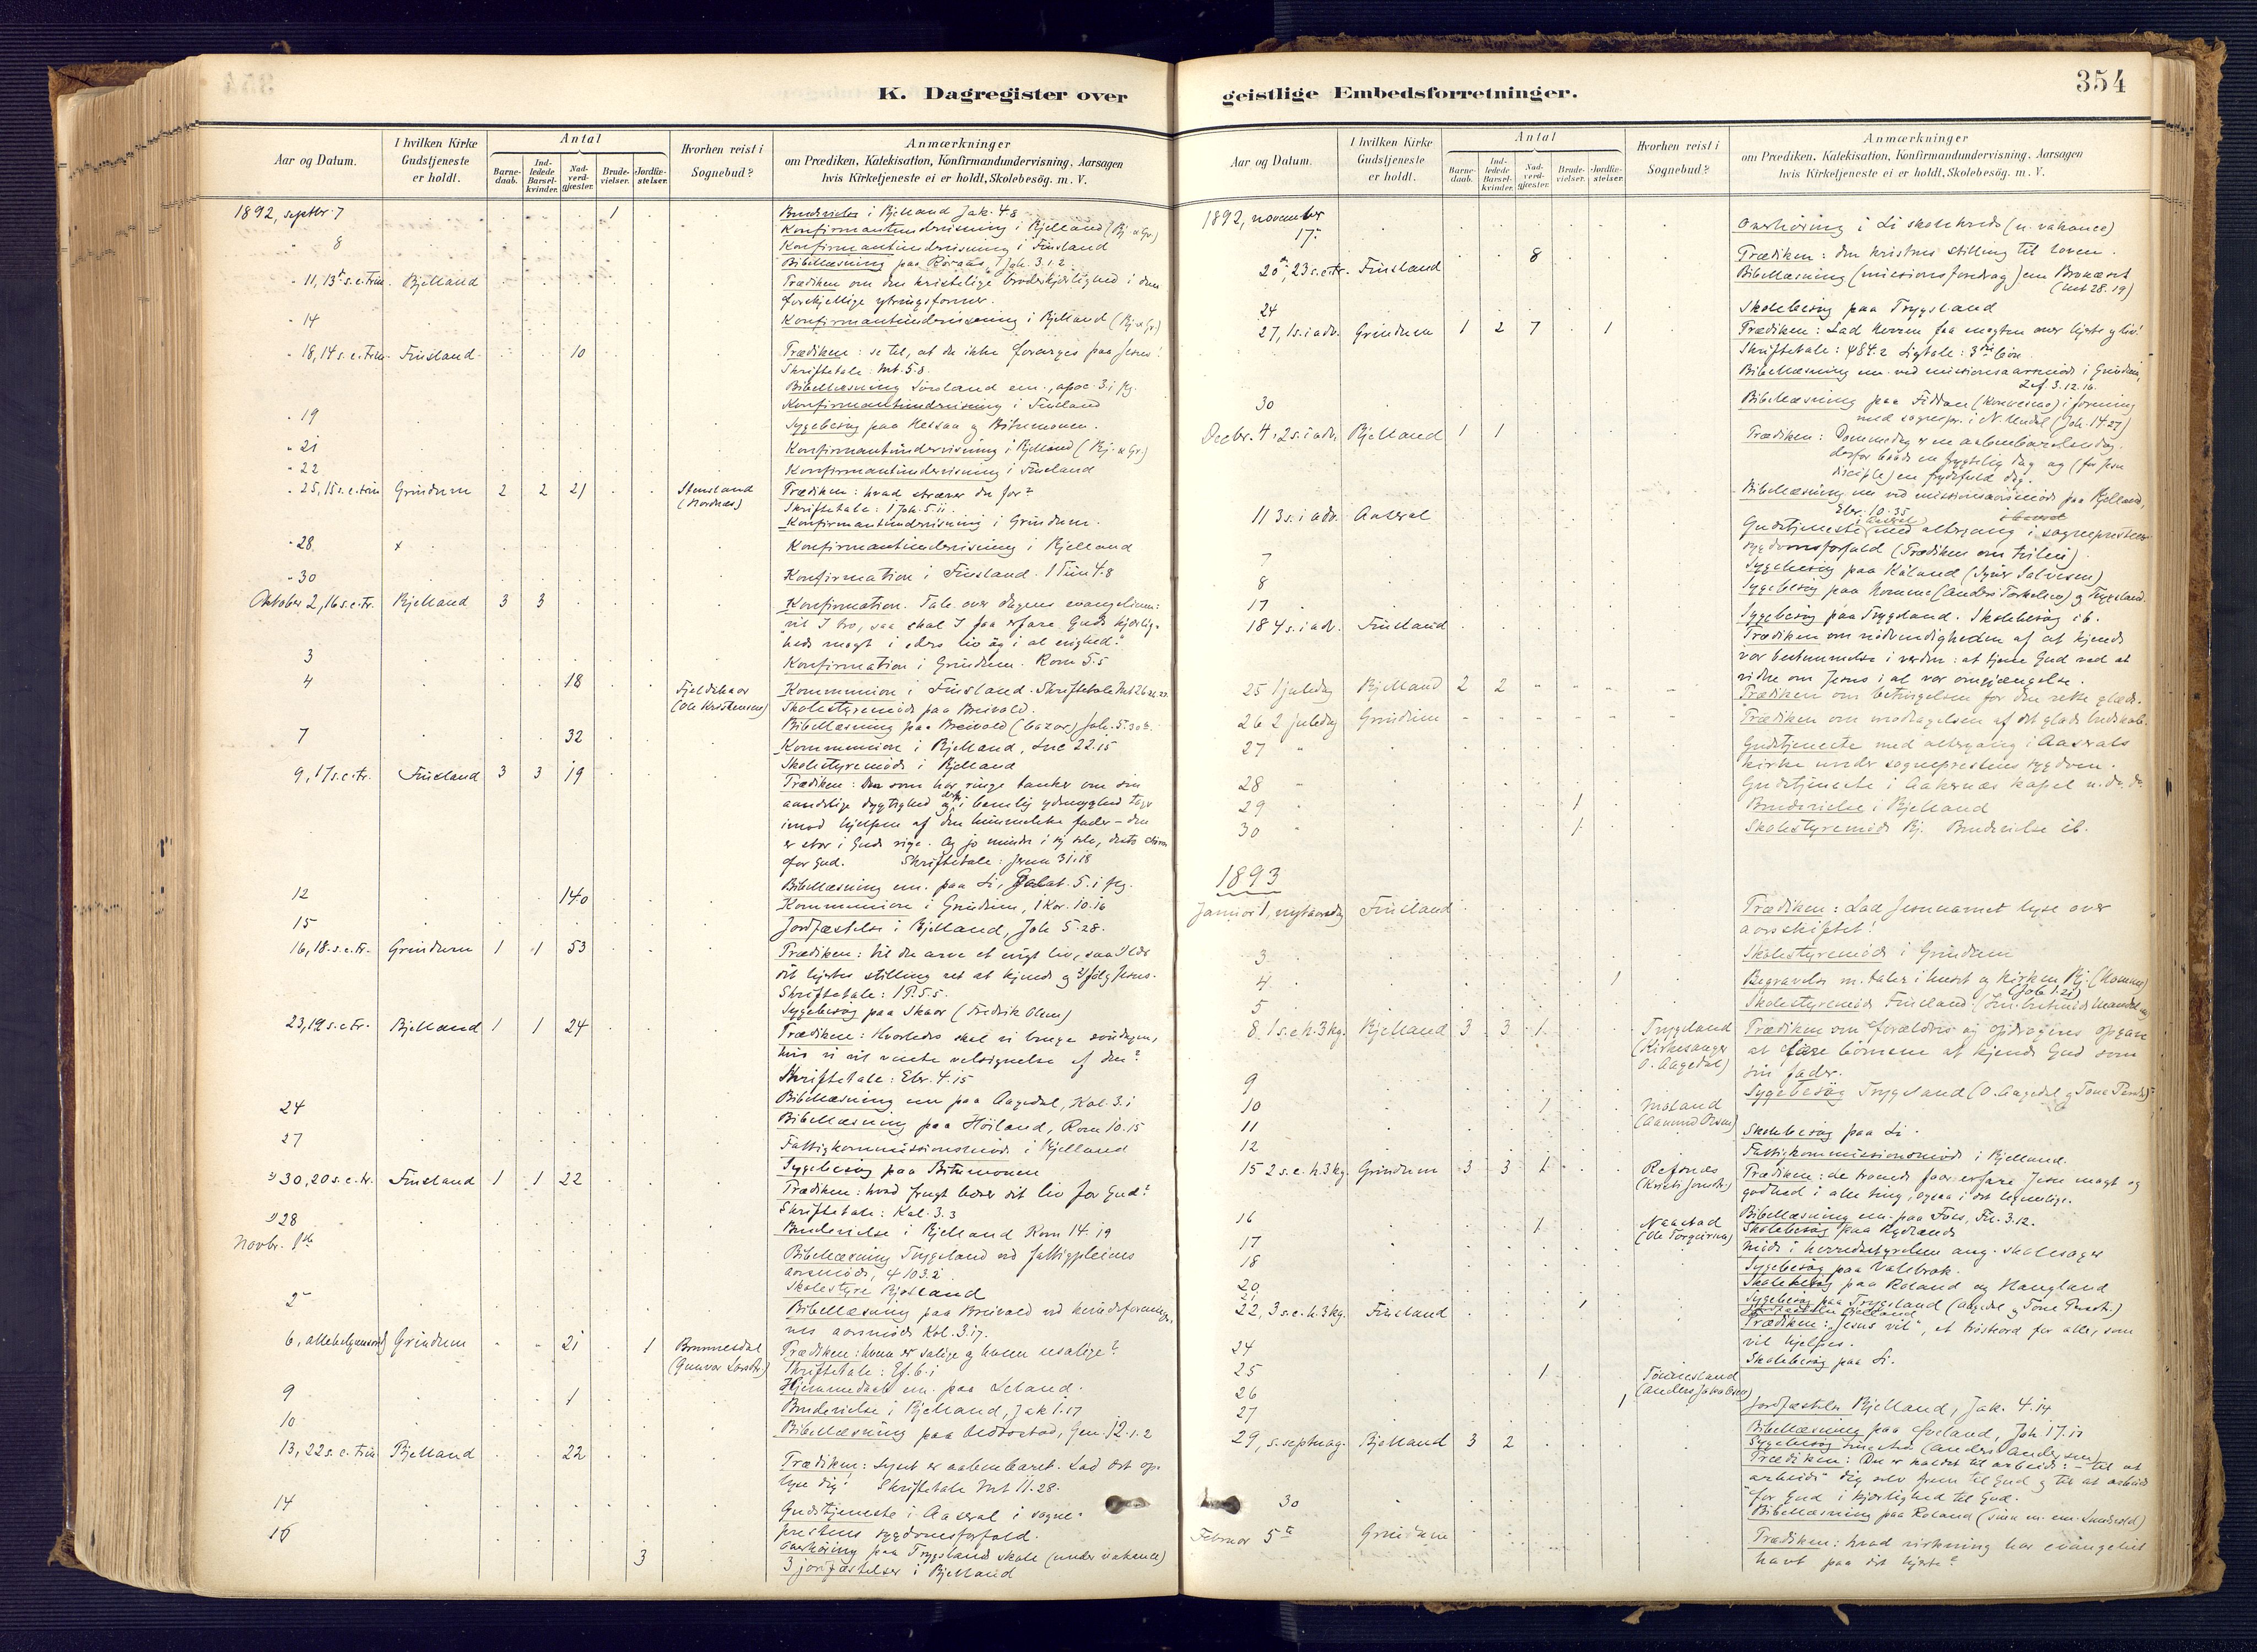 K. Dagregister over
Aar og Datum.
I hvilken Kirke Gudstjeneste er holdt.
Antal
Barne-daab.
Ind-ledede Barsel-kvinder.
Nad-verd-gjæster.
Brude-vielser.
Jordfæ-stelser.
Hvorhen reist i Sognebud?
Anmærkninger
om Prædiken, Katekisation, Konfirmandundervisning, Aarsagen
hvis Kirketjeneste ei er holdt, Skolebesøg. m. V.
1892, septbr. 7 1 Brudevielse i Bjelland Jak. 4.8
Konfirmantundervisning i Bjelland (Bj. & Gr.)
8 Konfirmantundervisning i Finsland
Bibellæsning paa Røraas, 1 Joh. 3.1.2
11, 13de s.e.trin. Bjelland Prædiken om den kristelige broderkjærlighed i dens
forskjellige ytringsformer.
14 Konfirmantundervisning i Bjelland (Bj. & Gr.)
18, 14 s.e.trin. Finsland 10 Prædiken: se til, at du ikke forarges paa Jesus!
Skriftetale: Mt. 5.8.
Bibellæsning em., apoc. 3.
Konfirmantundervisning i Finsland
19 Sygebesøg paa
21 Konfirmantundervisning i Bjelland (Bj. & Gr.)
22 Konfirmantundervisning i Finsland
25, 15 s.e.trin Grindum 2 2 21 Stensland Prædiken: hvad stræver du for?
Skriftetale: 1 Joh. 5.11.
Konfirmantundervisning i Grindum.
28 x Konfirmantundervisning i Bjelland
30 Konfirmation i Finsland. 1 Tim 4.8
Oktober 2, 16 s.e.tr. Bjelland 3 3 Konfirmation. Tale over dagens evangelium:
"vil I tro, saa skal I faa erfare Guds kjærlig-
heds magt i eders liv og i al evighed."
3 Konfirmation i Grindum. Rom 5.5
4 18 Fjeldskaar (Ole Kristensen) Kommunion i Finsland. Skriftetale Mt 26
Skolestyremøde paa Breivold.
Bibellæsning paa Breivold (bazar) Joh. 5.
7 32 Kommunion i Bjelland, Luc 22.15
Skolestyremøde i Bjelland
9, 17 s.e.tr. Finsland 3 3 19 Prædiken: Den som har ringe tanker om sin
aandelige dygtighed og derfor i barnlig ydmyghed tager
imod hjelpen af den himmelske fader – den
er stor i Guds rige. Og jo mindre i sig selv, desto større
for Gud. Skriftetale: Jerem 31.18
Bibellæsning em. paa Li, Galat. 5.
12 140 Kommunion i Grindum, 1 Kor. 10.16
15 Jordfæstelse i Bjelland, Joh 5.28.
16, 18. s.e.tr. Grindum 1 1 53 Prædiken: Vil du arve et evigt liv, saa 1) lær
dit hjertes stilling ret at kjende og 2) følg Jesus.
Skriftetale: 1 P. 5.5.
Sygebesøg paa Skaar (Fredrik Olsen)
23, 19 s.e.tr. Bjelland 1 1 24 Prædiken: Hvorledes skal vi bruge søndagen,
hvis vi vil vente velsignelse af den?
Skriftetale: Ebr. 4.15
Bibellæsning em paa Aagedal, Kol. 3.1
24 Bibellæsning paa Høiland, Rom 10.15
27 Fattigkommissionsmøde i Bjelland
Sygebesøg paa
30, 20 s.e.tr. Finsland 1 1 22 Prædiken: hvad frugt bærer dit liv for Gud?
Skriftetale: Kol. 3.3
28 Brudevielse i Bjelland Rom 14.19
Novbr. 1ste Bibellæsning Trygsland ved fattigpleiens
aarsmøde, 103.2
Skolestyre Bjelland
2 Bibellæsning paa Breivold ved kvindeforening-
ens aarsmøde Kol. 3.17.
6, allehelgensd. Grindum 21 1 Brunnesdal (Gunvor Larsdtr.) Prædiken: hvem er salige og hvem usalige?
Skriftetale: Ef. 6.1
Hjemmedaab em. paa Leland.
9 1 Brudevielse i Bjelland, Jak 1.17
10 Bibellæsning paa, Gen. 12.1.2
13, 22 s.e.trin Bjelland 22 Prædiken: Lyset er aabenbaret. Lad det op-
lyse dig! Skriftetale Mt 11.28.
14 Gudstjeneste i Aaseral i sogne-
prestens sygdomsforfald.
16 Overhøring paa Trygslands skole (under vakance)
3 3 jordfæstelser i Bjelland
geistlige Embedsforretninger.
354
Aar og Datum.
I hvilken Kirke Gudstjeneste er holdt.
Antal
Barne-daab.
Ind-ledede Barsel-kvinder.
Nad-verd-gjæster.
Brude-vielser.
Jordfæ-stelser.
Hvorhen reist i Sognebud?
Anmærkninger
om Prædiken, Katekisation, Konfirmandundervisning, Aarsagen
hvis Kirketjeneste ei er holdt, Skolebesøg. m. V.
1892, november
17 Overhøring i Li skolekreds (u. vakance)
20de, 23 s.e.tr. Finsland 8 Prædiken: den kristnes stilling til loven.
Bibellæsning (missionsforedrag) em
(Mt 28.19)
24 Skolebesøg paa Trygsland
27, 1 s. i adv. Grindum 1 2 7 1 Prædiken: Lad Herren faa magten over hjerte og liv!
Skriftetale: 484.2 Ligtale: 3die bøn
Bibellæsning em. ved missionsaarsmøde i Grindum,
Zef 3.12.16.
30 Bibellæsning paa Fiddan (Konsmo) i forening
med sognepr. i N. Undal (Joh. 14.27)
Decbr. 4, 2 s. i adv. Bjelland 1 1 Prædiken: Dommedag er en aabenbarelsesdag,
derfor baade en frygtelig dag og (for Jesu
disciple) en frydefuld dag.
Bibellæsning em ved missionsaarsmøde paa Bjelland,
Ebr. 10.35
11 3 s. i adv. Aaseral Gudstjeneste i Aaseral med altergang i sogneprestens
sygdomsforfald (Prædiken om tvilen)
7 Sygebesøg paa Kaaland (Salvesen)
8 Sygebesøg paa Homme (Anders Torkelsen) og Trygsland.
17 Sygebesøg paa Trygsland. Skolebesøg ib.
18 4 s. i adv. Finsland Prædiken om nødvendigheden af at kjende
vor bestemmelse i verden: at tjene Gud ved at
vidne om Jesus i al vor omgjængelse.
25 1 juledag Bjelland 2 2 Prædiken om betingelsen for den rette glæde.
26 2 juledag Grindum Prædiken om modtagelsen af det glade budskab.
27 Gudstjeneste med altergang i Aaserals
kirke under sogneprestens sygdom.
28 Gudstjeneste i Aaknæs kapel u. do. do.
29 1 Brudevielse i Bjelland
30 1 Skolestyremøde Bj. Brudevielse ib.
1893
Januar 1, nytaarsdag Finsland Prædiken: Lad Jesunavnet lyse over
aarsskiftet!
3 Skolestyremøde i Grindum
4 1 Begravelse m. taler i huset og kirken Bj. (Homme)
(Job 1.21)
5 Skolestyremøde Finsland
8. 1 s.e.h.3kg. Bjelland 3 3 1 Trygsland (Kirkesanger O. Aagedal) Prædiken om forældres og opdrageres opgave
at lære børnene at kjende Gud som
sin fader.
9 Sygebesøg Trygsland (O. Aagedal og Tone Persdtr.)
10 1 Moland
11 Skolebesøg paa Li.
12 Fattigkommissionsmøde i Bjelland.
15 2 s.e.h.3kg. Grindum 3 3 1 Refsnes Prædiken: de troende faar erfare Jesu magt og
godhed i alle ting, ogsaa i det legemlige.
Bibellæsning em. paa Foss, Fil. 3.12.
16 1 Naastad Skolebesøg paa Rydland
17 Møde i herredsstyrelsen ang. skolesager
18 Sygebesøg paa Valebrok.
20 Skolebesøg paa Roland og Haugland
21 Sygebesøg paa Trygsland (Aagedal og Tone Persdtr.)
22, 3 s.e.h.3kg. Finsland 1 Prædiken: "Jesus vil", et trøsteord for alle, som
vil hjelpes.
24 Skolebesøg paa Li.
25 1 Tønnesland (Anders Jakobsen)
26
27 1 Jordfæstelse Bjelland, Jak. 4.14
Bibellæsning paa Sveland, Joh 17.
Sygebesøg (Anders Andersen)
29, s. septuag. Bjelland 3 2 Prædiken: Du er kaldet til arbeide: – til at
arbeide dig selv frem til Gud og til at arbeide
for Gud i kjærlighed til Gud.
30 Bibellæsning paa Roland
Februar 5te Grindum Prædiken: hvad virkning har evangeliet
havt paa dit hjerte?